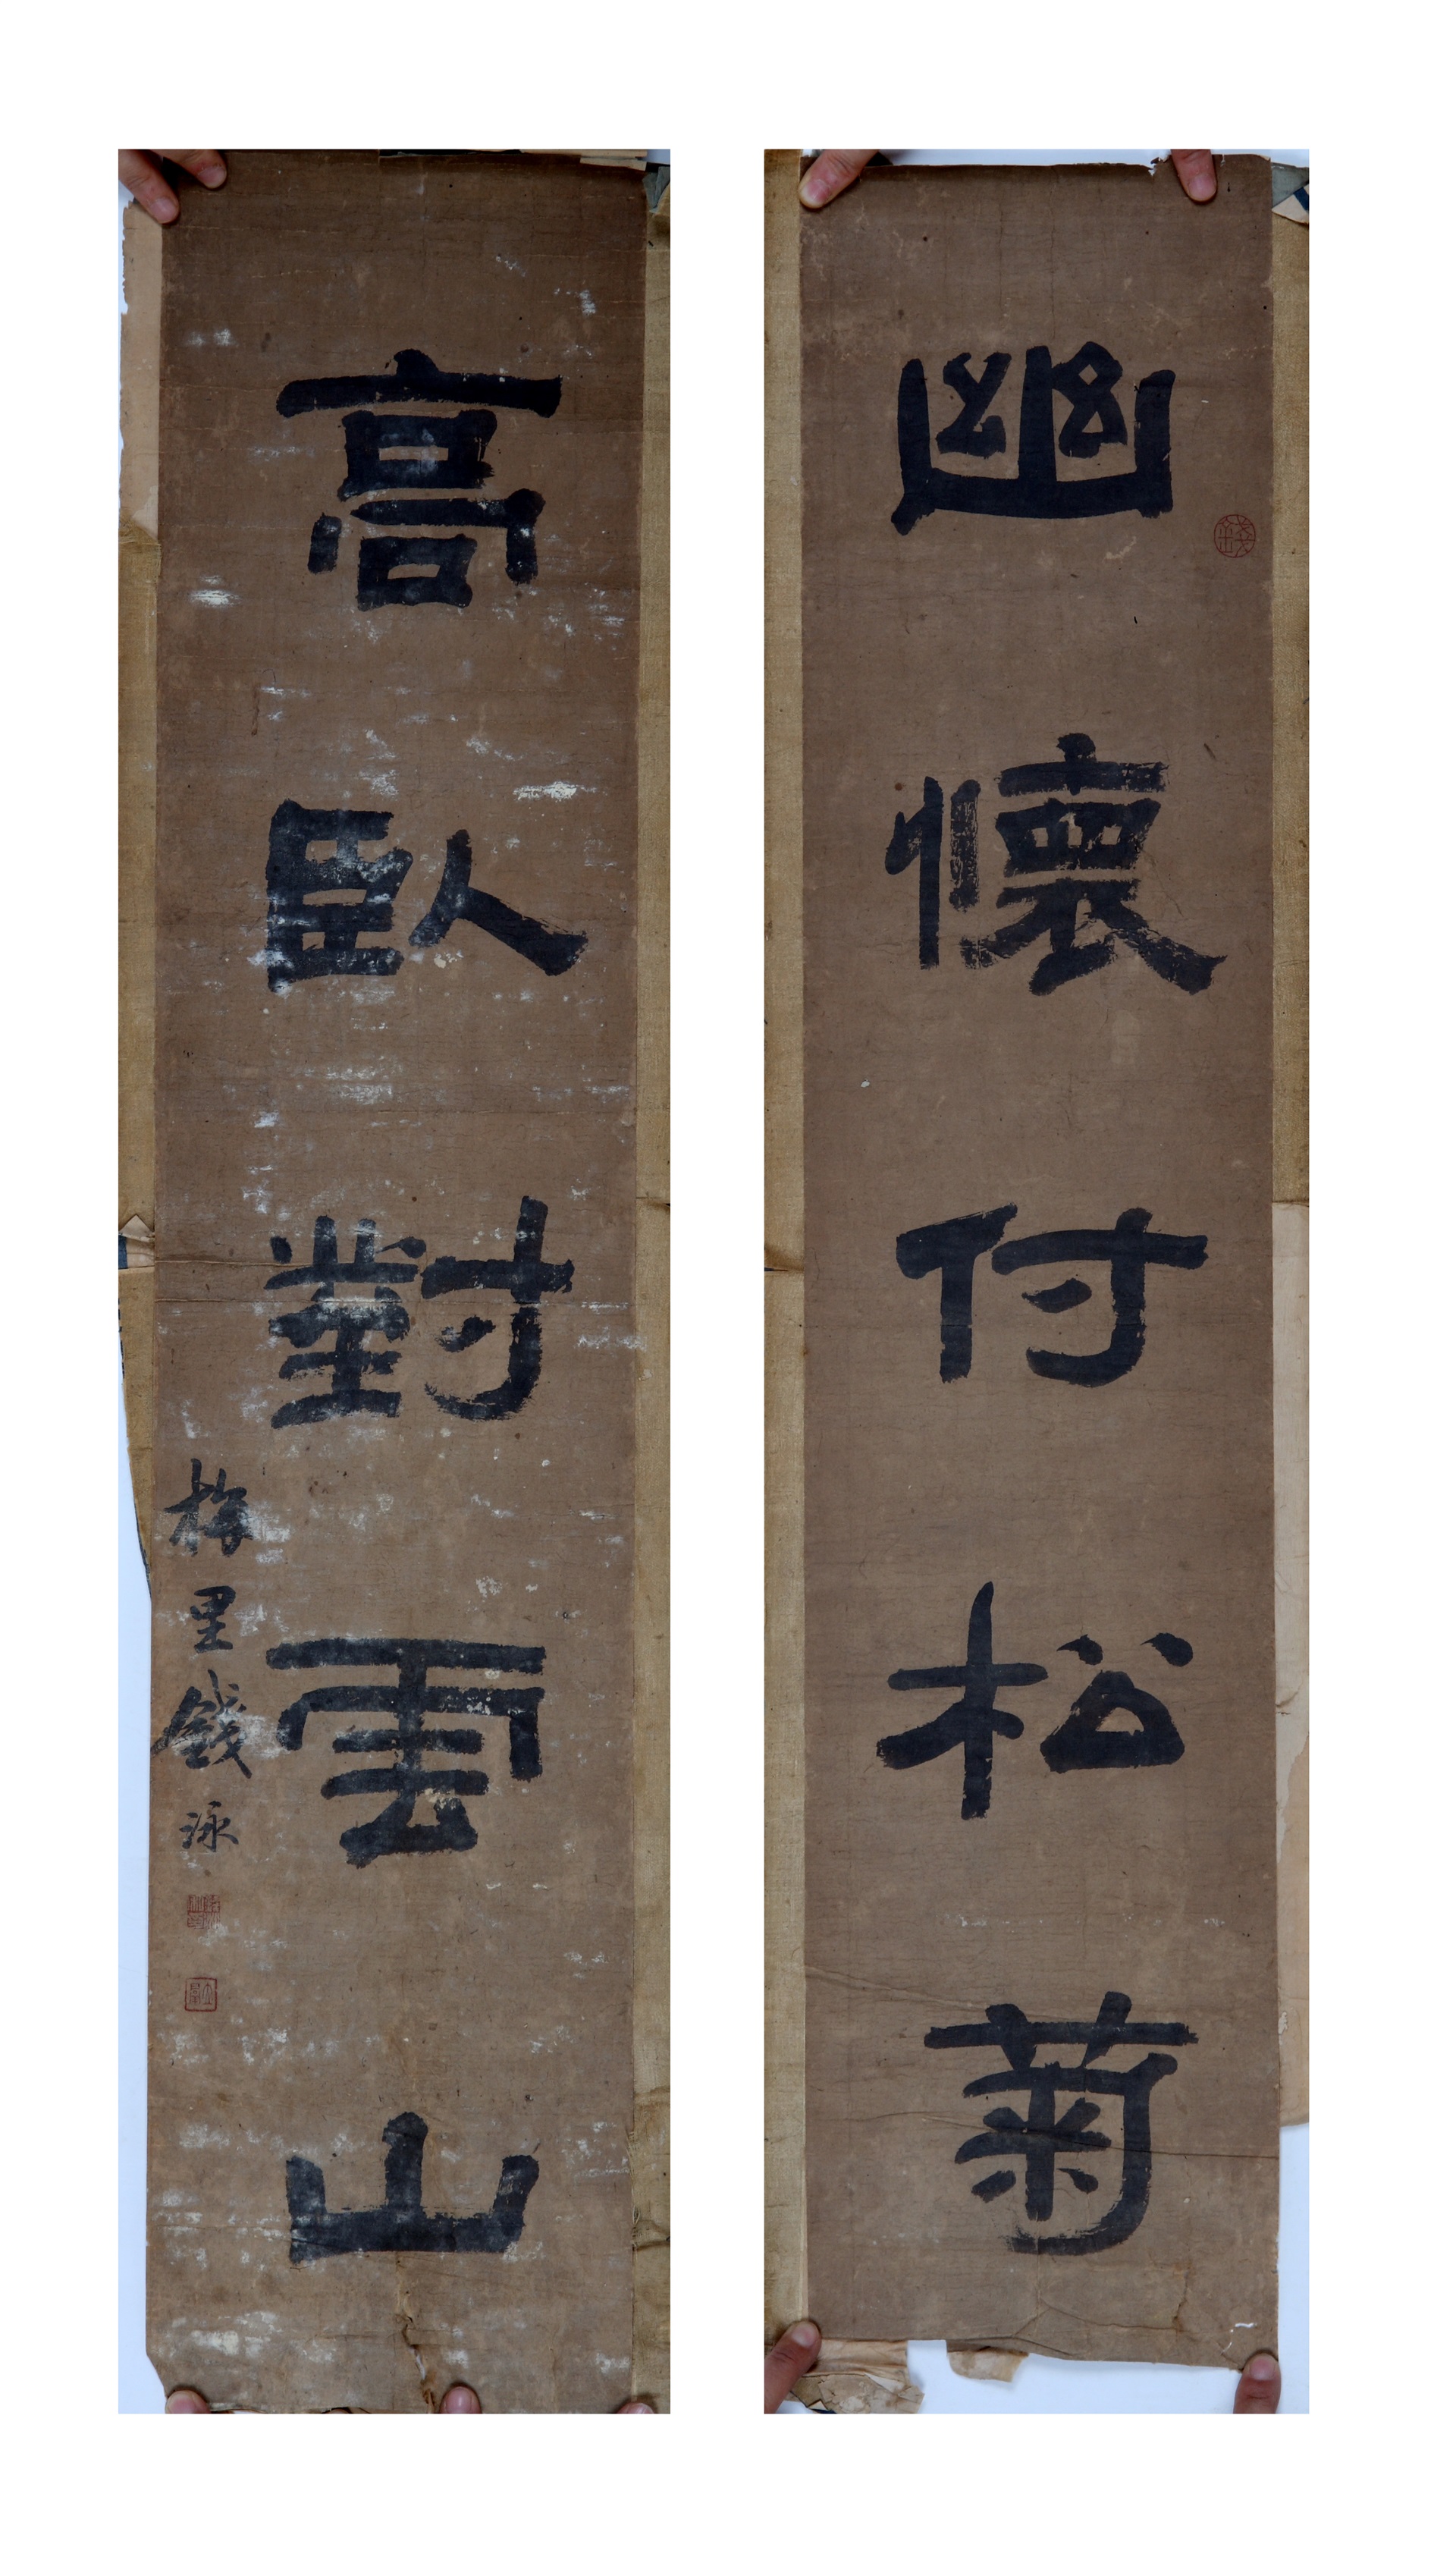 幽懷付松菊
高臥對雲山
梅里錢泳